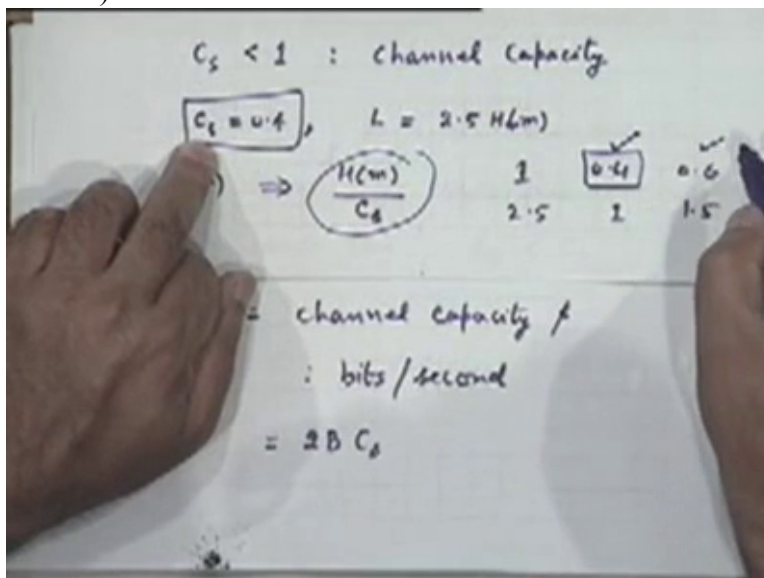 Cs < 1 : Channel Capacity
Cs = 0.4, L = 2.5 H(m)
) ⇒ H(m)/Cs 1 0.4 0.6
2.5 1 1.5
= channel capacity
: bits/second
= 2B Cs